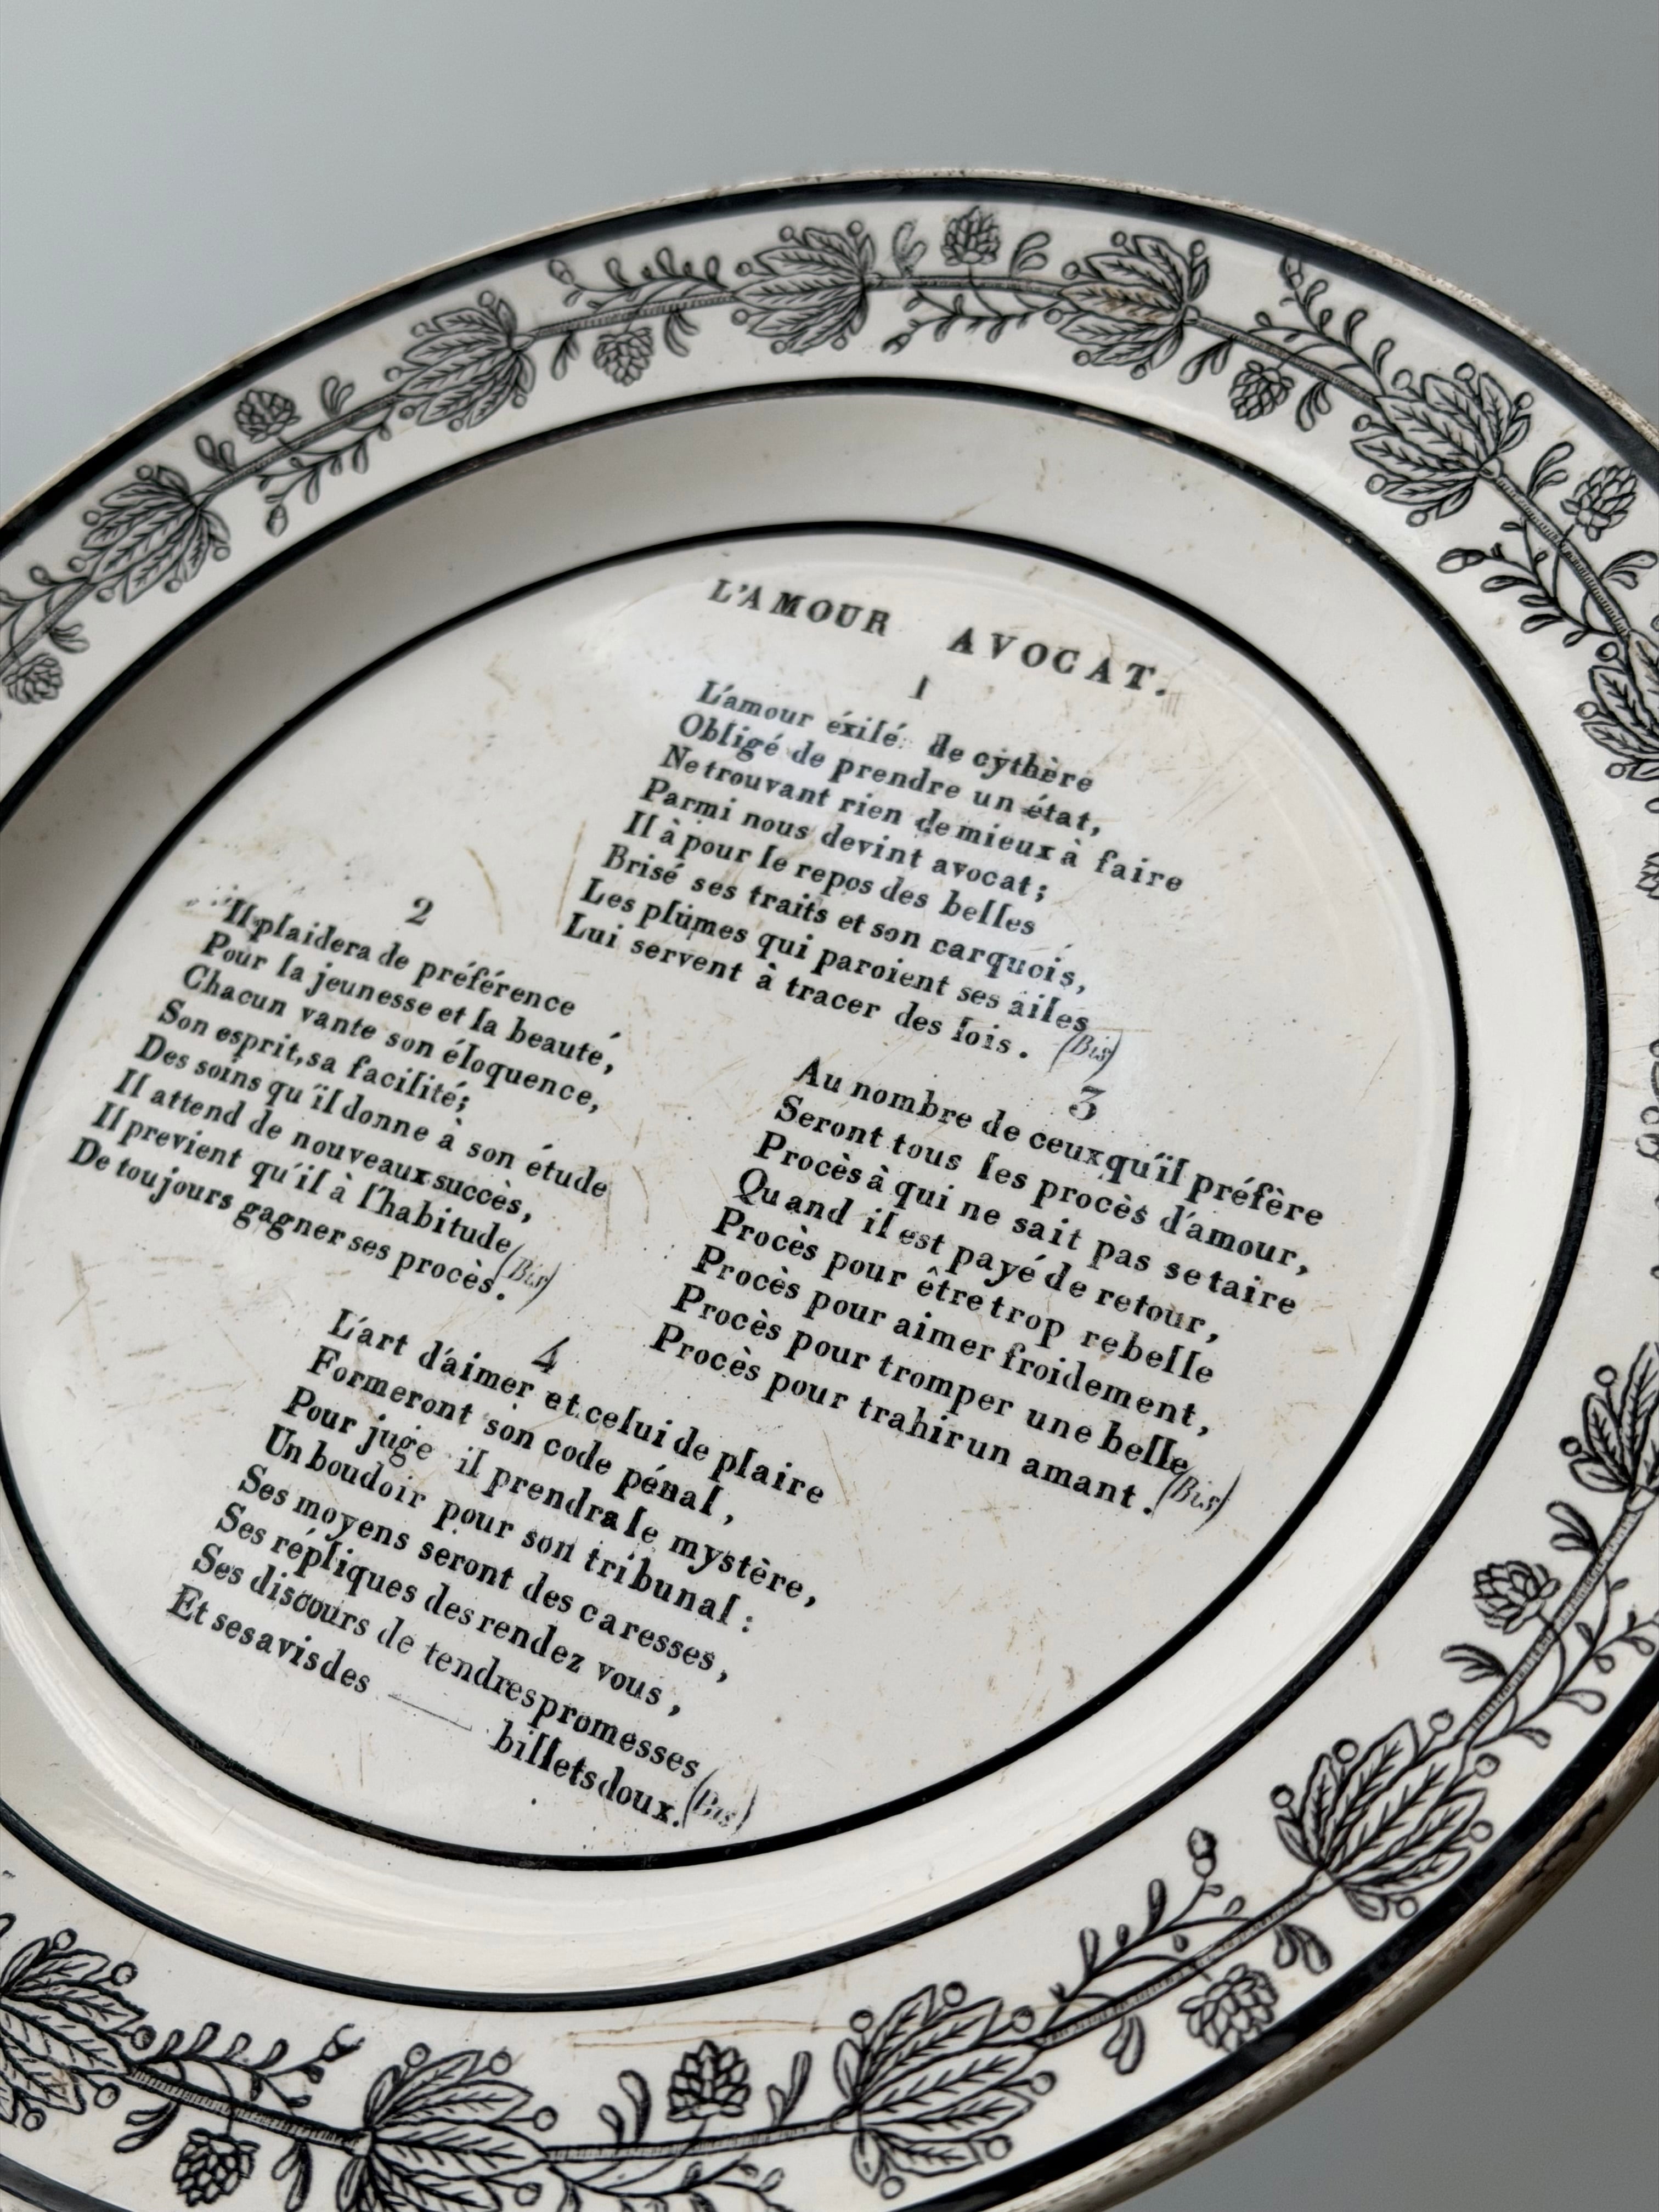 L'AMOUR AVOCAT.
1
L'amour éxilé de cythère
Obligé de prendre un état,
Ne trouvant rien de mieux à faire
Parmi nous devint avocat;
Il à pour le repos des belles
Brisé ses traits et son carquois,
Les plumes qui paroient ses ailes
Lui servent à tracer des lois. (Bis)
2
Il plaidera de préférence
Pour la jeunesse et la beauté,
Chacun vante son éloquence,
Son esprit, sa facilité;
Des soins qu'il donne à son étude
Il attend de nouveaux succès,
Il previent qu'il à l'habitude
De toujours gagner ses procès. (Bis)
3
Au nombre de ceux qu'il préfère
Seront tous les procès d'amour,
Procès à qui ne sait pas se taire
Quand il est payé de retour,
Procès pour être trop rebelle
Procès pour aimer froidement,
Procès pour tromper une belle
Procès pour trahir un amant. (Bis)
4
L'art d'aimer et celui de plaire
Formeront son code pénal,
Pour juge il prendra le mystère,
Un boudoir pour son tribunal:
Ses moyens seront des caresses,
Ses répliques des rendez vous,
Ses discours de tendres promesses
Et ses avis des — billets doux. (Bis)